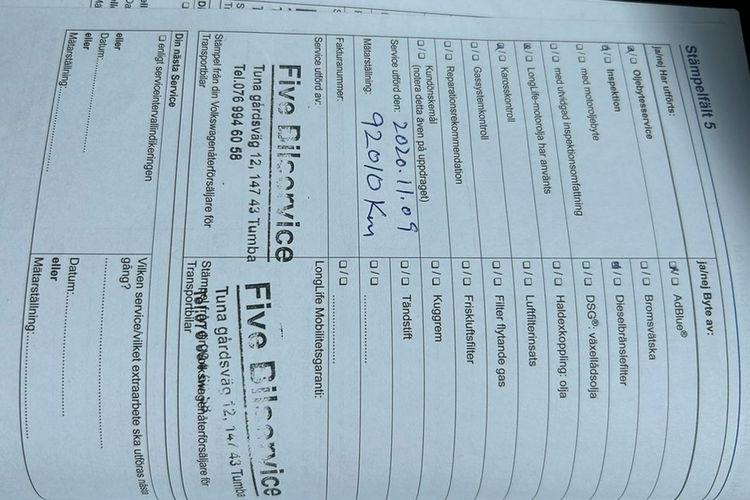 Stämpelfält 5
ja/nej Har utförts:
☐/☐ Oljebytesservice
☐/☐ Inspektion
☐/☐ med motoroljebyte
☐/☐ med utvidgad inspektionsomfattning
☐/☐ LongLife-motorolja har använts
☐/☐ Karosskontroll
☐/☐ Gassystemkontroll
☐/☐ Reparationsrekommendation
☐/☐ Kundönskemål
(notera detta även på uppdraget)
Service utförd den: 2020.11.09
Mätarställning: 92010 Km
Fakturanummer:
Service utförd av:
Five Bilservice
Tuna gårdsväg 12, 147 43 Tumba
Tel.076 994 60 58
Stämpel från din Volkswagenåterförsäljare för
Transportbilar
ja/nej Byte av:
☐/☐ AdBlue®
☐/☐ Bromsvätska
☐/☐ Dieselbränslefilter
☐/☐ DSG®: växellådsolja
☐/☐ Haldexkoppling: olja
☐/☐ Luftfilterinsats
☐/☐ Filter flytande gas
☐/☐ Friskluftsfilter
☐/☐ Kuggrem
☐/☐ Tändstift
☐/☐ ..................
☐/☐ ..................
LongLife Mobilitetsgaranti:
Five Bilservice
Tuna gårdsväg 12, 147 43 Tumba
Stämpel från din Volkswagenåterförsäljare för
Transportbilar
Din nästa Service
☐ enligt serviceintervallindikeringen
eller
Datum:
eller
Mätarställning:
Vilken service/vilket extraarbete ska utföras nästa
gång?
Datum:
eller
Mätarställning: